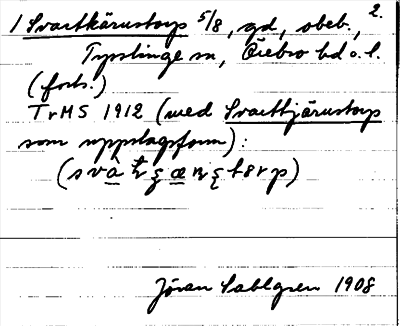 1 Svartkärnstorp 5/8, gd, obeb., 2.
Tysslinge sn, Örebro hd o. l.
(forts.)
TrMS 1912 (med Svarttjärnstorp
som uppslagsform):
Jöran Sahlgren 1908